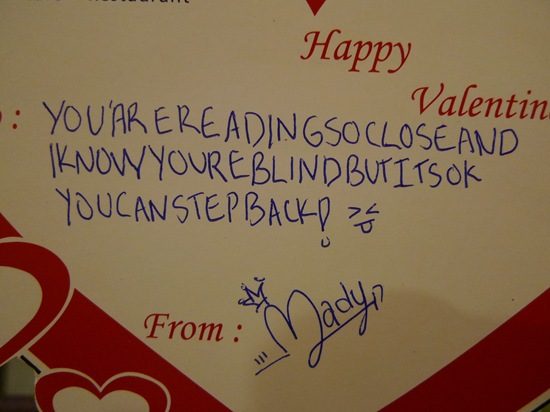 Happy
Valentin
:
YOU'AREREADINGSOCLOSEAND
IKNOWYOUREBLINDBUTITSOK
YOUCANSTEPBACK!
From :
Mady